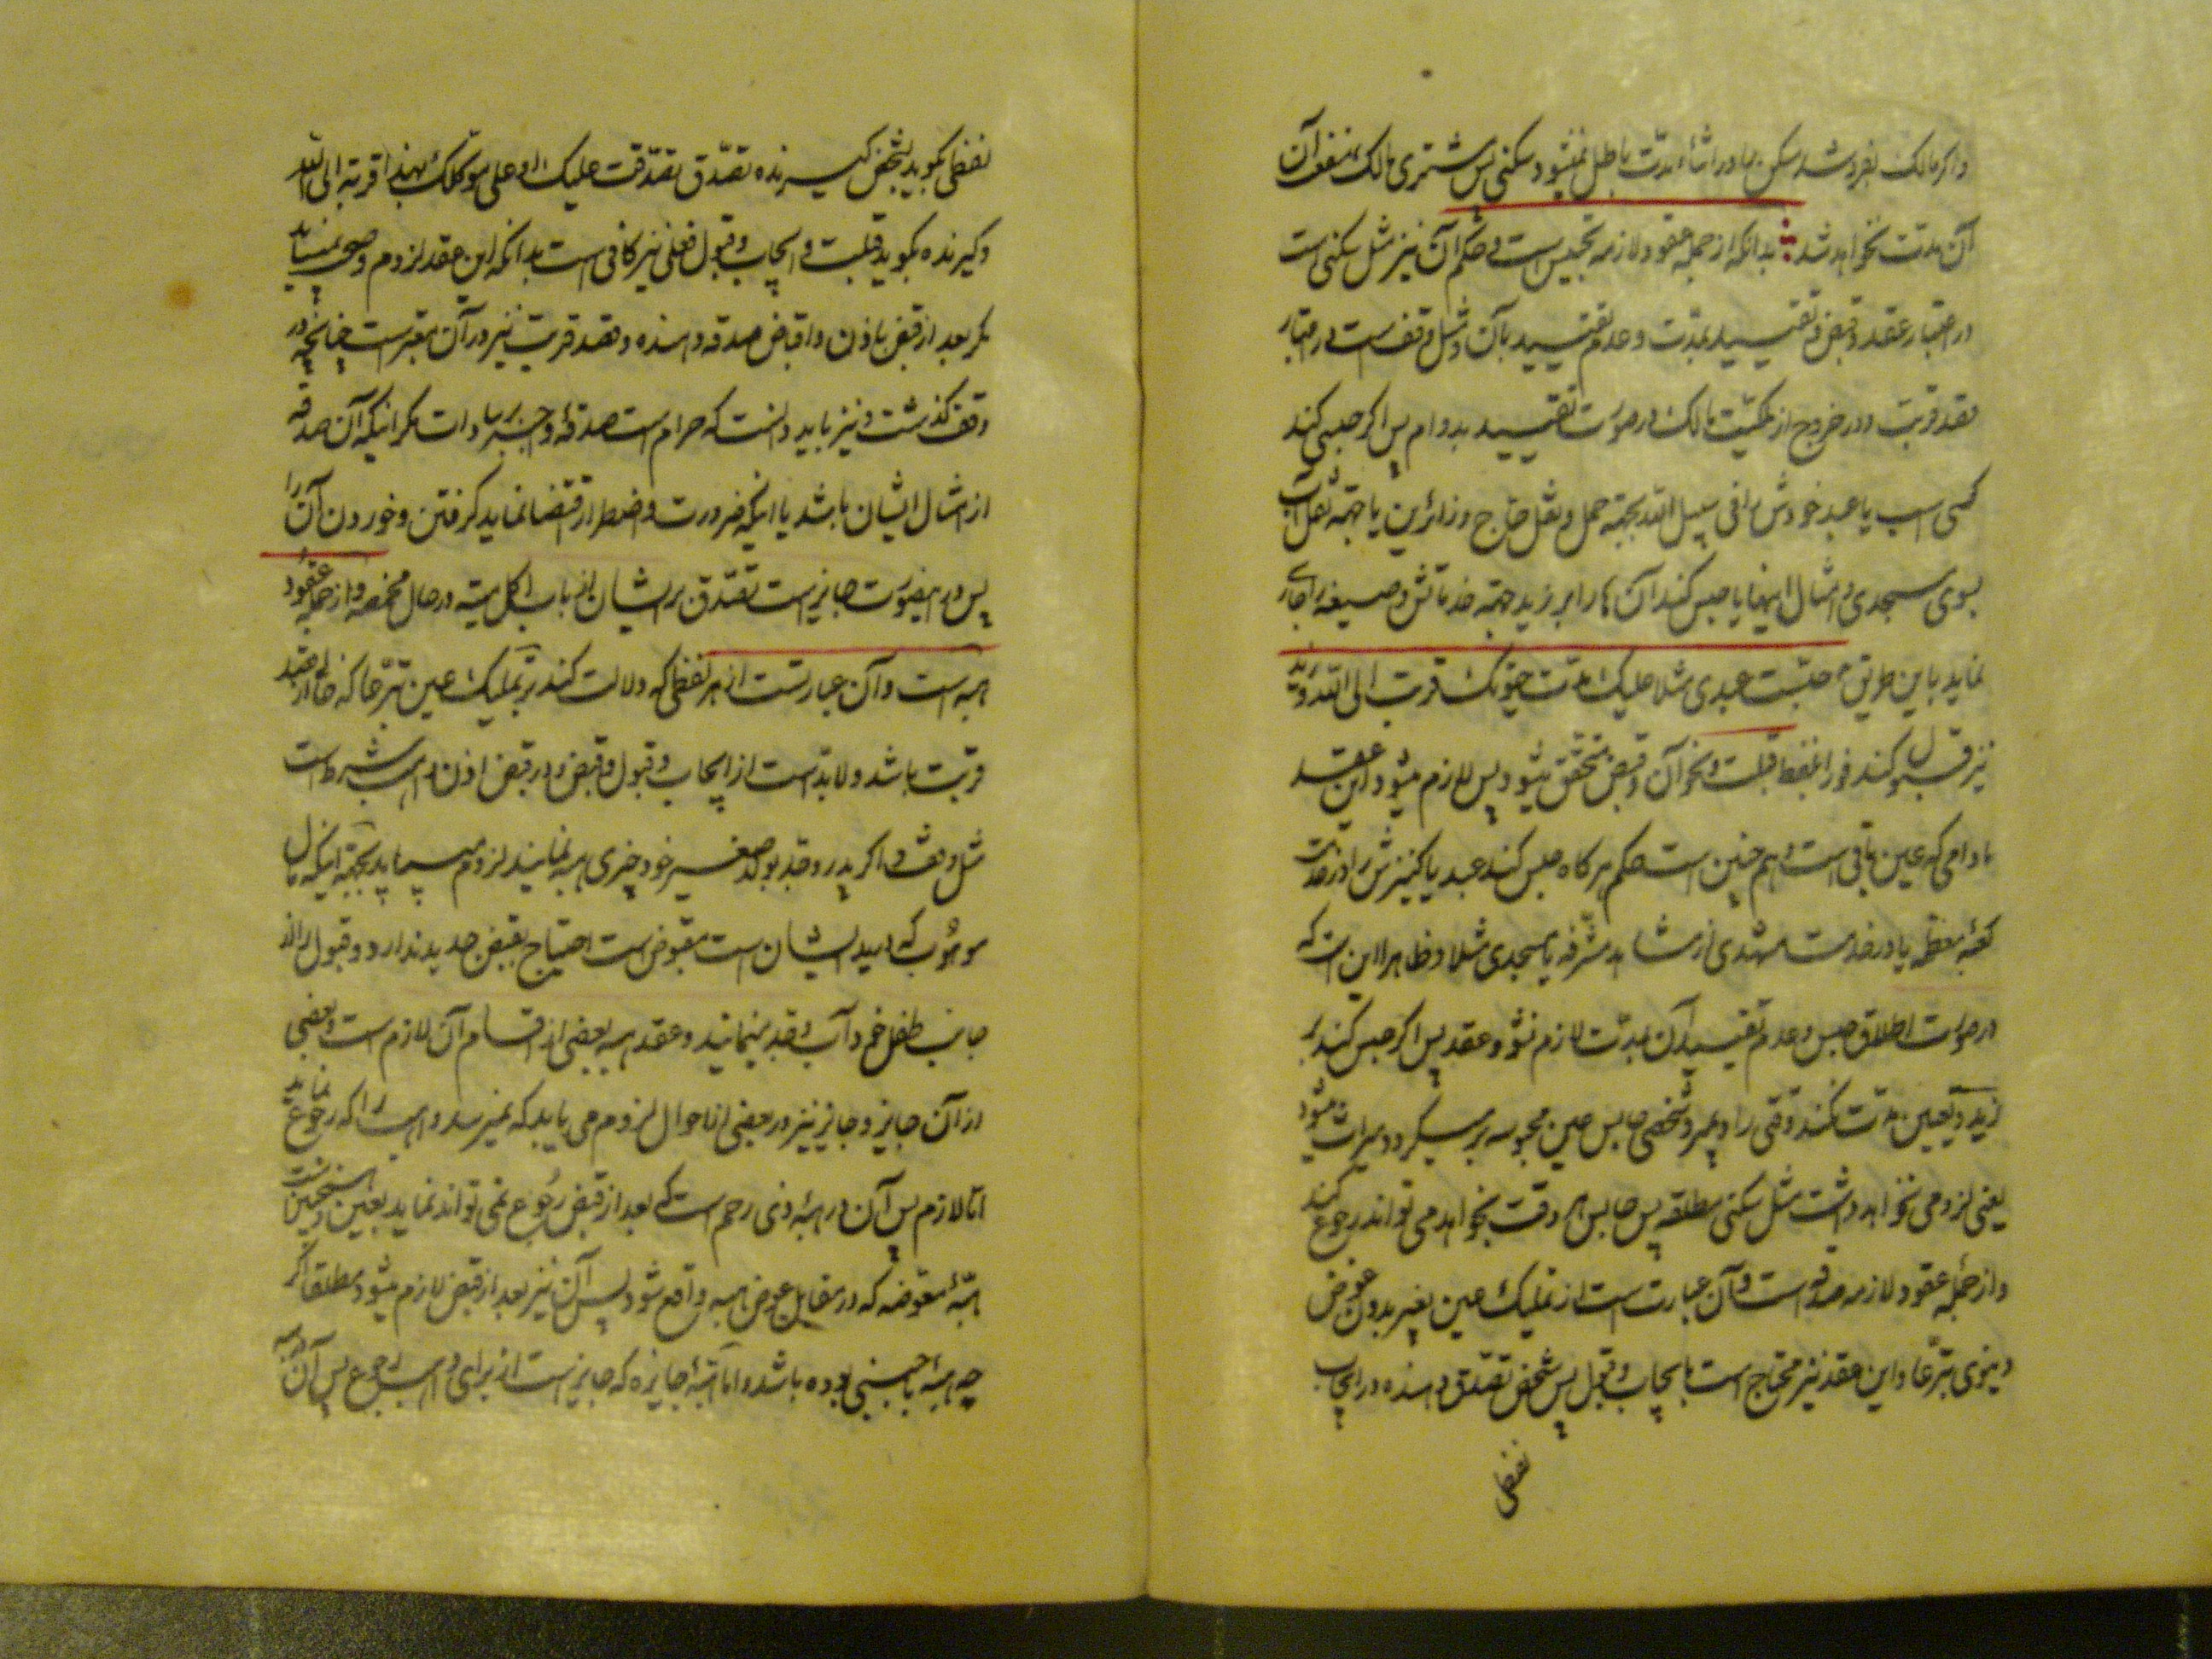 واکر مالک بفروشد مسکن را در اثناء مدّت باطل نمیشود سکنی پس مشتری مالک منفعت آن
آن مدت نخواهد شد بدانکه از جمله عقود لازمه تحبیس است و حکم آن نیز مثل سکنی است
در اعتبار عقد و قبض و تقیید بمدّت و عدم تقیید بآن و مثل وقف است در اعتبار
قصد قربت و در خروج از ملکیّت مالک در صورت تقیید بدوام پس اکر حبس کند
کسی اسب یا عبد خودش را فی سبیل الله بجهته حمل و نقل حاج و زائرین یا جهته نقل آب
بسوی مسجدی و امثال اینها یا حبس کند آن را بر زید جهته خدماتش و صیغه را جاری
نماید باین طریق حبّست عبدی مثلا علیک مدّت حیوتک قربة الی الله و زید
نیز قبول کند فورا بلفظ قبلت و نحو آن و قبض متحقق میشود پس لازم میشود این عقد
مادامی که عین باقی است و هم چنین است حکم هرکاه حبس کند عبد یا کنیزش را در خدمت
کعبه معظمه یا در خدمت مشهدی از مشاهد مشرّفه یا مسجدی مثلا و ظاهرا این است که
در صورت اطلاق حبس و عدم تقیید آن بمدّت لازم نشود عقد پس اکر حبس کند بر
زید و تعیین مدّت نکند وقتی را و بمیرد شخص حابس عین محبوسه برمیکردد و میراث میشود
یعنی لزومی نخواهد داشت مثل سکنی مطلقه پس حابس هر وقت بخواهد می تواند رجوع کند
و از جمله عقود لازمه صدقه است و آن عبارت است از تملیک عین بغیر بدون عوض
دنیوی تبرّعا و این عقد نیز محتاج است بایجاب و قبول پس شخص تصدّق دهنده در ایجاب
لفظی
لفظی بکوید بشخص کیرنده تصدّق تصدّقت علیک او علی موکلک بهذا قربة الی الله
و کیرنده بکوید قبلت و ایجاب و قبول فعلی نیز کافی است بدانکه این عقد لزوم و صحّت نمییابد
مکر بعد از قبض باذن و اقباض صدقه دهنده و قصد قربت نیز در آن معتبر است چنانچه در
وقف کذشت و نیز باید دانست که حرام است صدقهٔ واجبه بر سادات مکر اینکه آن صدقه
از امثال ایشان باشد یا اینکه ضرورت و اضطرار اقتضا نماید کرفتن و خوردن آن را
پس در اینصورت جایز است تصدّق بر ایشان از باب اکل میته در حال مخمصه و از جمله عقود
هبه است و آن عبارتست از هر لفظی که دلالت کند بر تملیک عین تبرّعا که خالی از قصد
قربت باشد و لابدّست از ایجاب و قبول و قبض و در قبض اذن واهب شرط است
مثل وقف و اکر پدر و جد بولد صغیر خود چیزی هبه نمایند لزوم میابد بجهته اینکه مال
موهوب که در ید ایشان است مقبوض است احتیاج بقبض جدید ندارد و قبول را از
جانب طفل خود آب و جد مینمایند و عقد هبه بعضی از اقسام آن لازم است و بعضی
از آن جایز و جایز نیز در بعضی از احوال لزوم می یابد که نمیرسد واهب را که رجوع نماید
امّا لازم پس آن در هبهٔ ذی رحم است که بعد از قبض رجوع نمی تواند نماید بعین و همچنین است
هبهٔ معوّضه که در مقابل عوض هبه واقع شود پس آن نیز بعد از قبض لازم میشود مطلقا اکر
چه هبهٔ باجنبی بوده باشد و امّا هبهٔ جایزه که جایز است از برای واهب رجوع پس آن در هبه